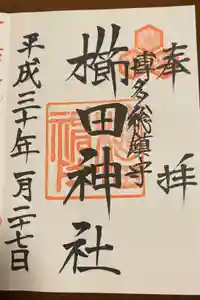 奉拝
博多總鎮守
櫛田神社
平成三十年一月二十七日